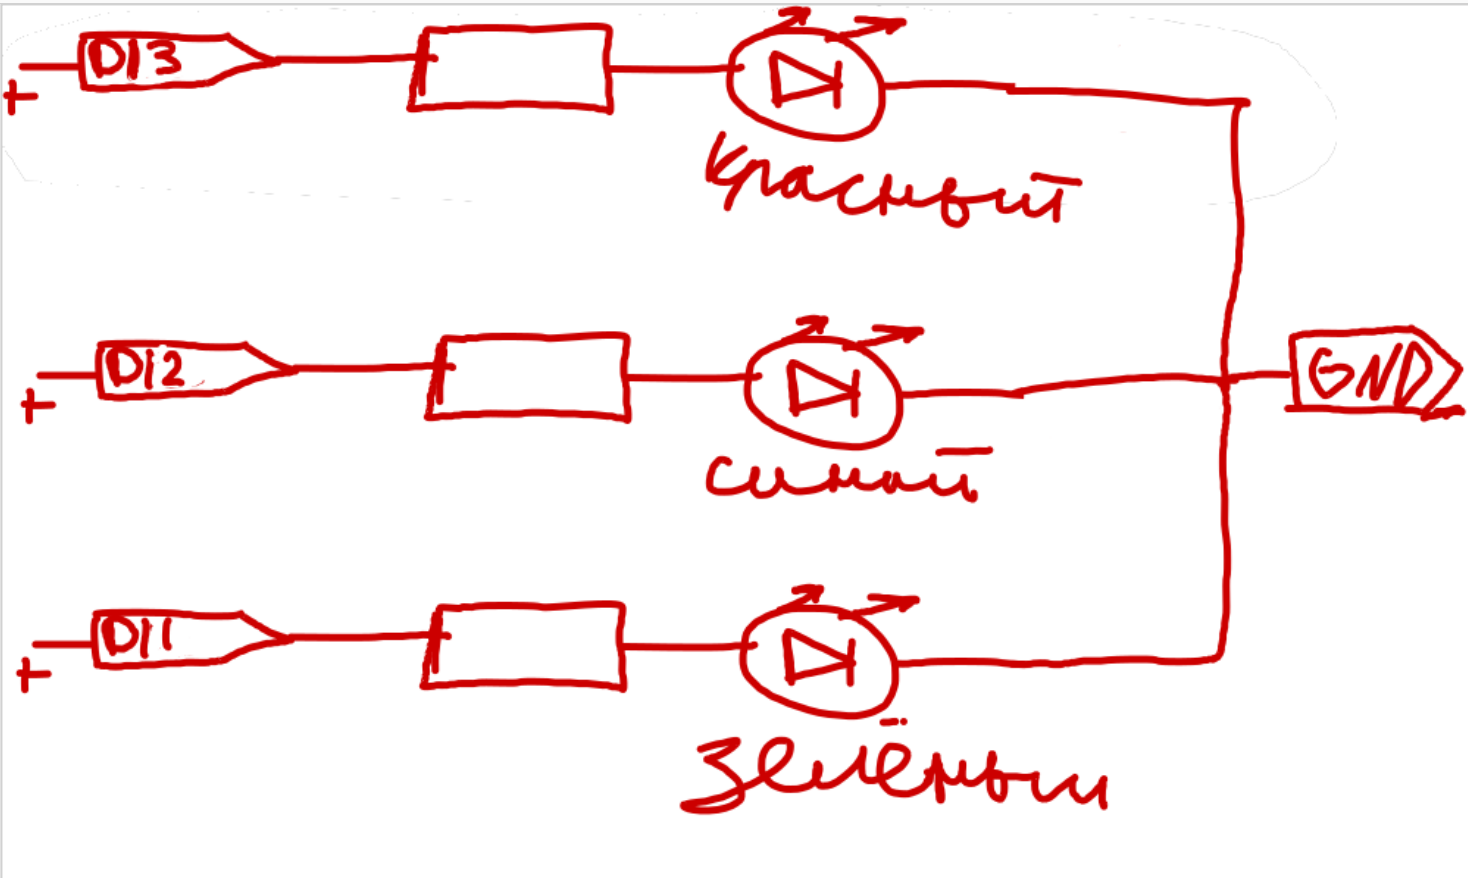 D13
+
красный
D12
+
GND
синий
D11
+
зелёный